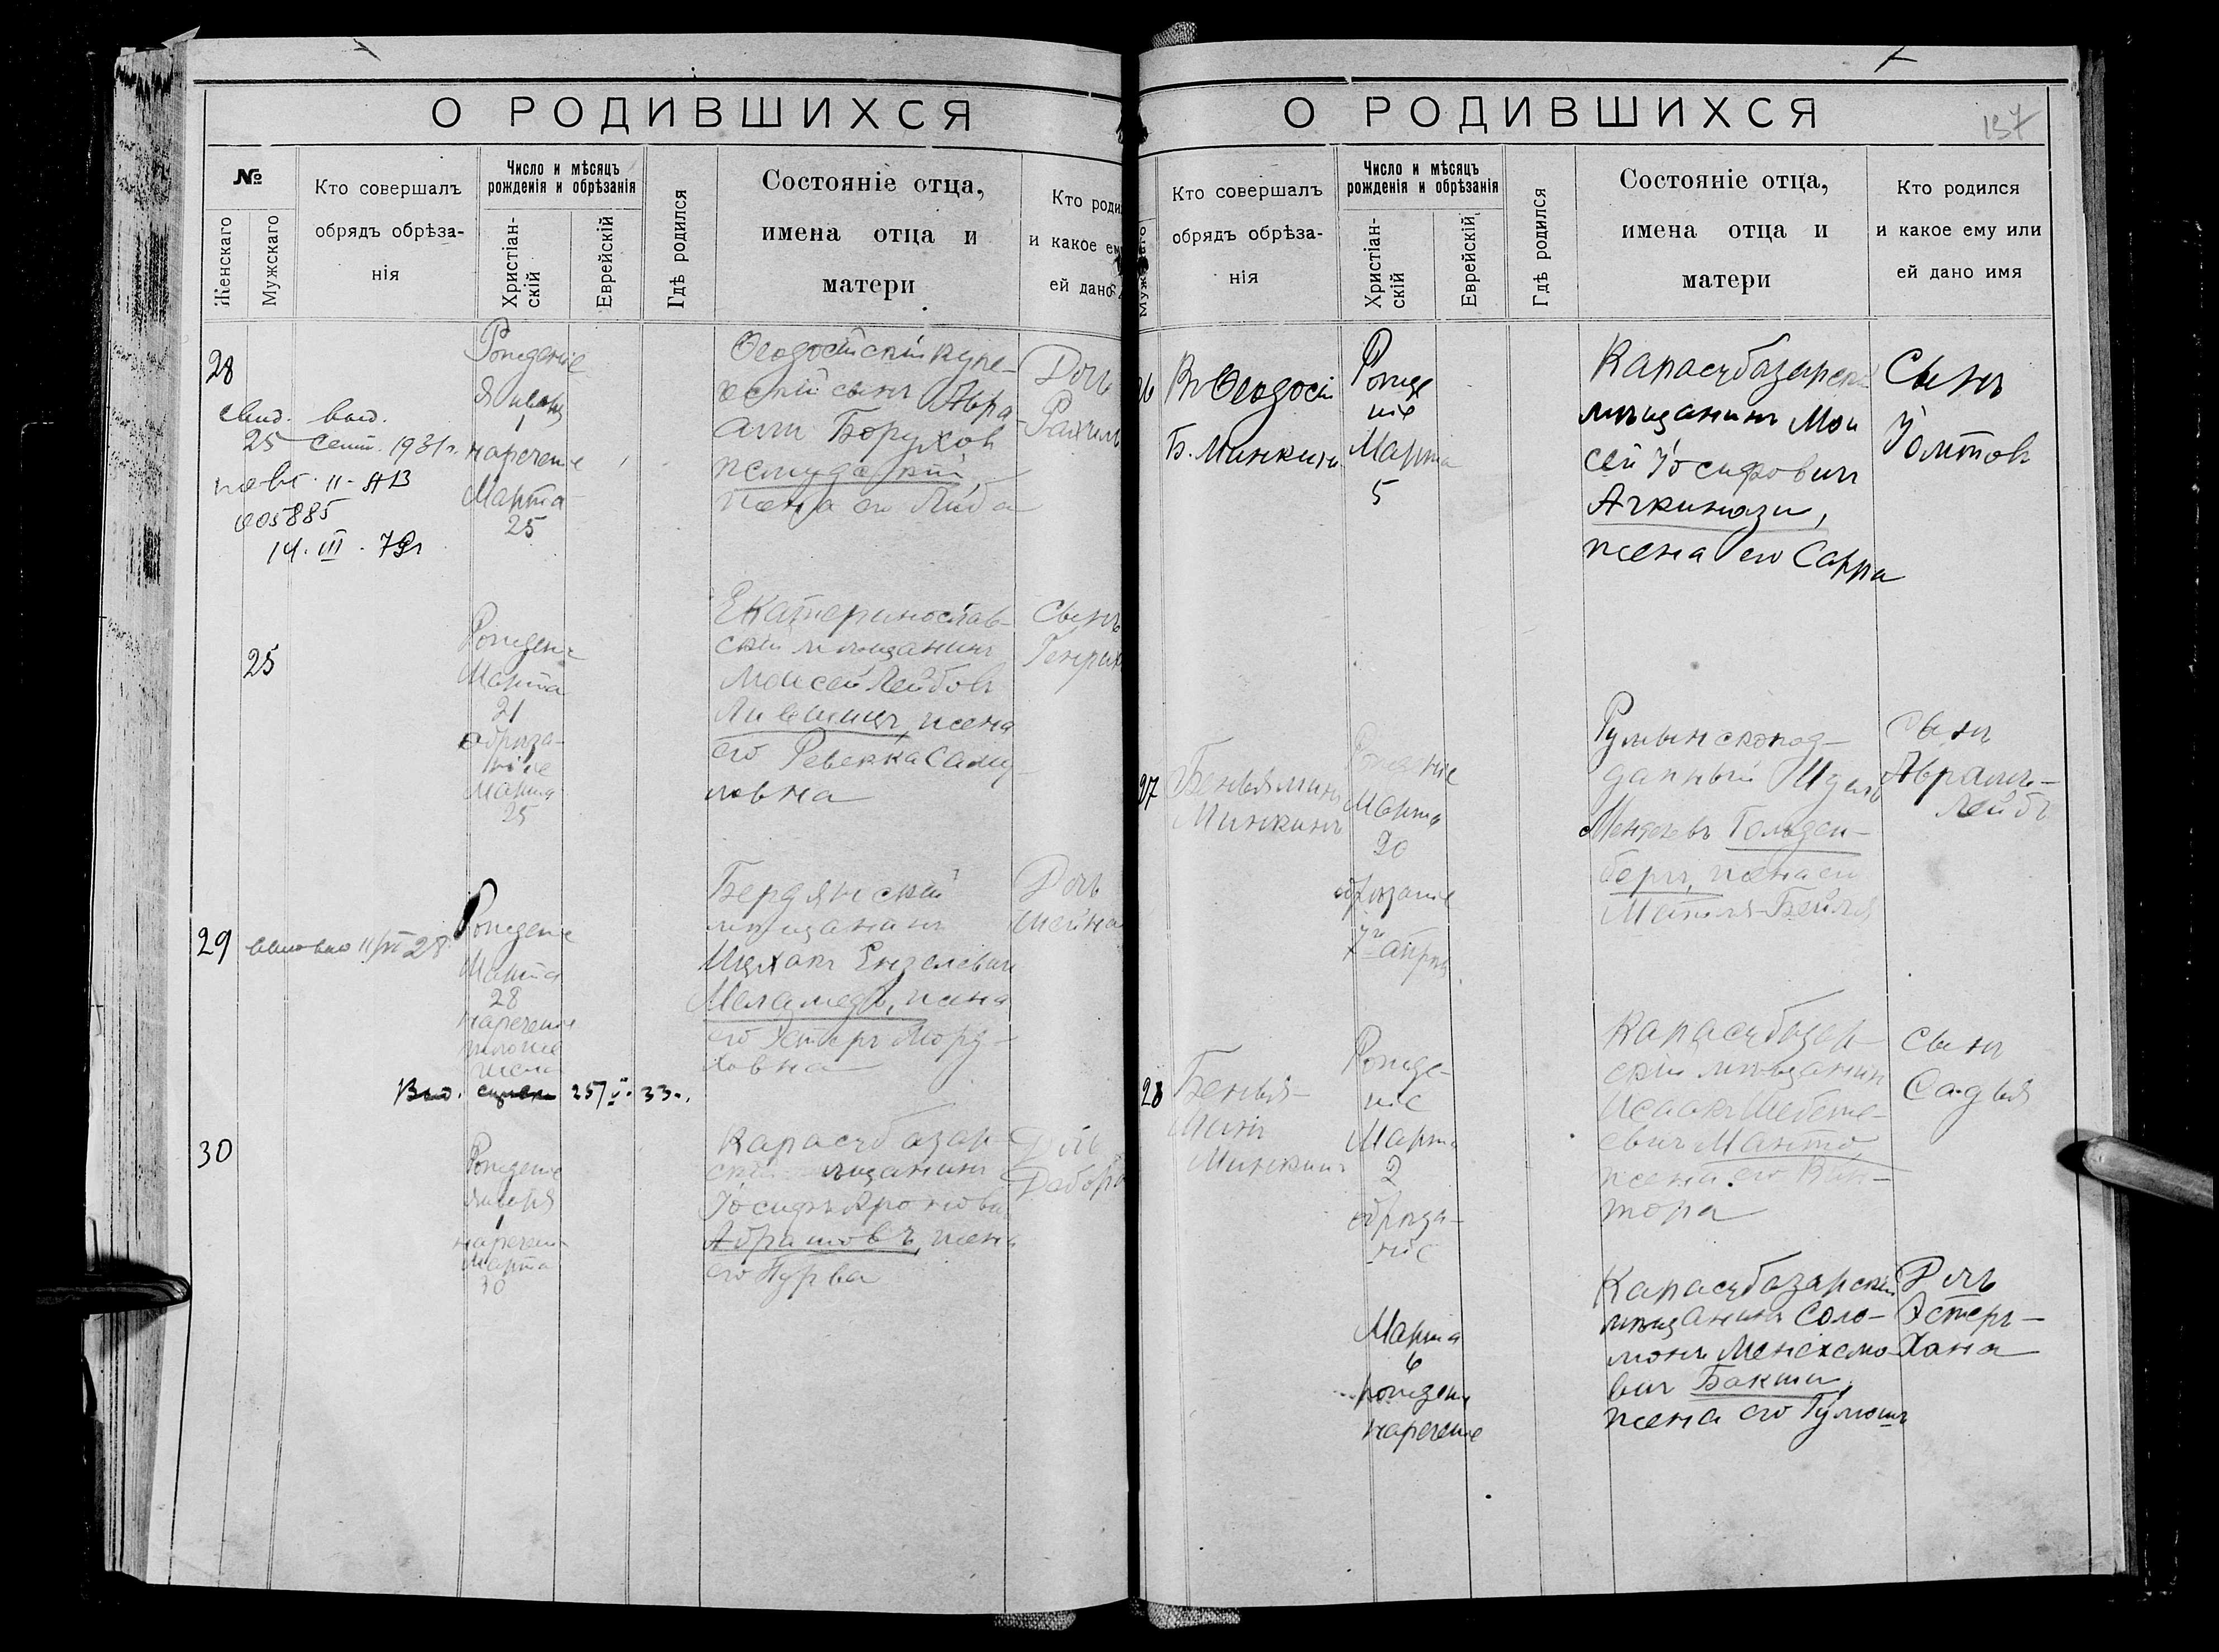 О РОДИВШИХСЯ
№
Женскаго
Мужскаго
Кто совершалъ
обрядъ обрѣза-
нія
Число и мѣсяцъ
рожденія и обрѣзанія
Христіан-
скій
Еврейскій
Гдѣ родился
Состояніе отца,
имена отца и
матери
Кто роди
и какое ем
ей дано
28
свид. выд.
25 сент. 1931 г.
повт. II-АВ
005885
14.III.79г
Рожденіе
Января
1
наречение
Марта
25
Ѳеодосійскій купе-
ческій сынъ Авра-
амъ Боруховъ
жена его Либа
Дочь
Рахиль
25
Рожденіе
Марта
21
обрѣза-
ніе
Марта
25
Екатеринослав-
скій мѣщанинъ
Моисей Лейбовъ
Лившицъ, жена
его Ревекка Саму-
ловна
Сынъ
Генрих
29
28
Рожденіе
Марта
28
наречение
Бердянскій
мѣщанинъ
Ицхакъ Ензелевич
Меламедъ, жена
его Эстеръ Морд-
ховна
Дочь
Шейна
Выд. справка 25/V-33 г.
30
Рожденіе
Января
1
наречение
Марта
30
Карасубазар-
скій мѣщанинъ
Іосифъ Ароновъ
Абрамовъ, жена
его Мурва
Дочь
Дебора
О РОДИВШИХСЯ
137
Кто совершалъ
обрядъ обрѣза-
нія
Число и мѣсяцъ
рожденія и обрѣзанія
Христіан-
скій
Еврейскій
Гдѣ родился
Состояніе отца,
имена отца и
матери
Кто родился
и какое ему или
ей дано имя
Въ Ѳеодосіи
Б. Минкинъ
Рожде
ніе
Марта
5
Карасубазарскій
мѣщанинъ Мои
сей Іосифовичъ
Ачкинази,
жена его Сарра
Сынъ
Іомтовъ
27
Беньяминъ
Минкинъ
Рожденіе
Марта
20
обрѣзаніе
7го апрѣля
Румынскопод-
данный Идель
Менделевъ Гольден-
бергъ, жена его
Матля-Бейля
Сынъ
Аврамъ-
Лейбъ
28
Бенья-
минъ
Минкинъ
Рожде-
ніе
Марта
2
обрѣза-
ніе
Карасубазар-
скій мѣщанин
Исаакъ Шебете-
евичъ Манто,
жена его Вик-
тора
Сынъ
Садья
Марта
6
рожденіе
наречение
Карасубазарскій
мѣщанинъ Соло-
монъ Менахемо-
вичъ Бакши,
жена его Гулюшъ
Дочь
Эстеръ-
Хана